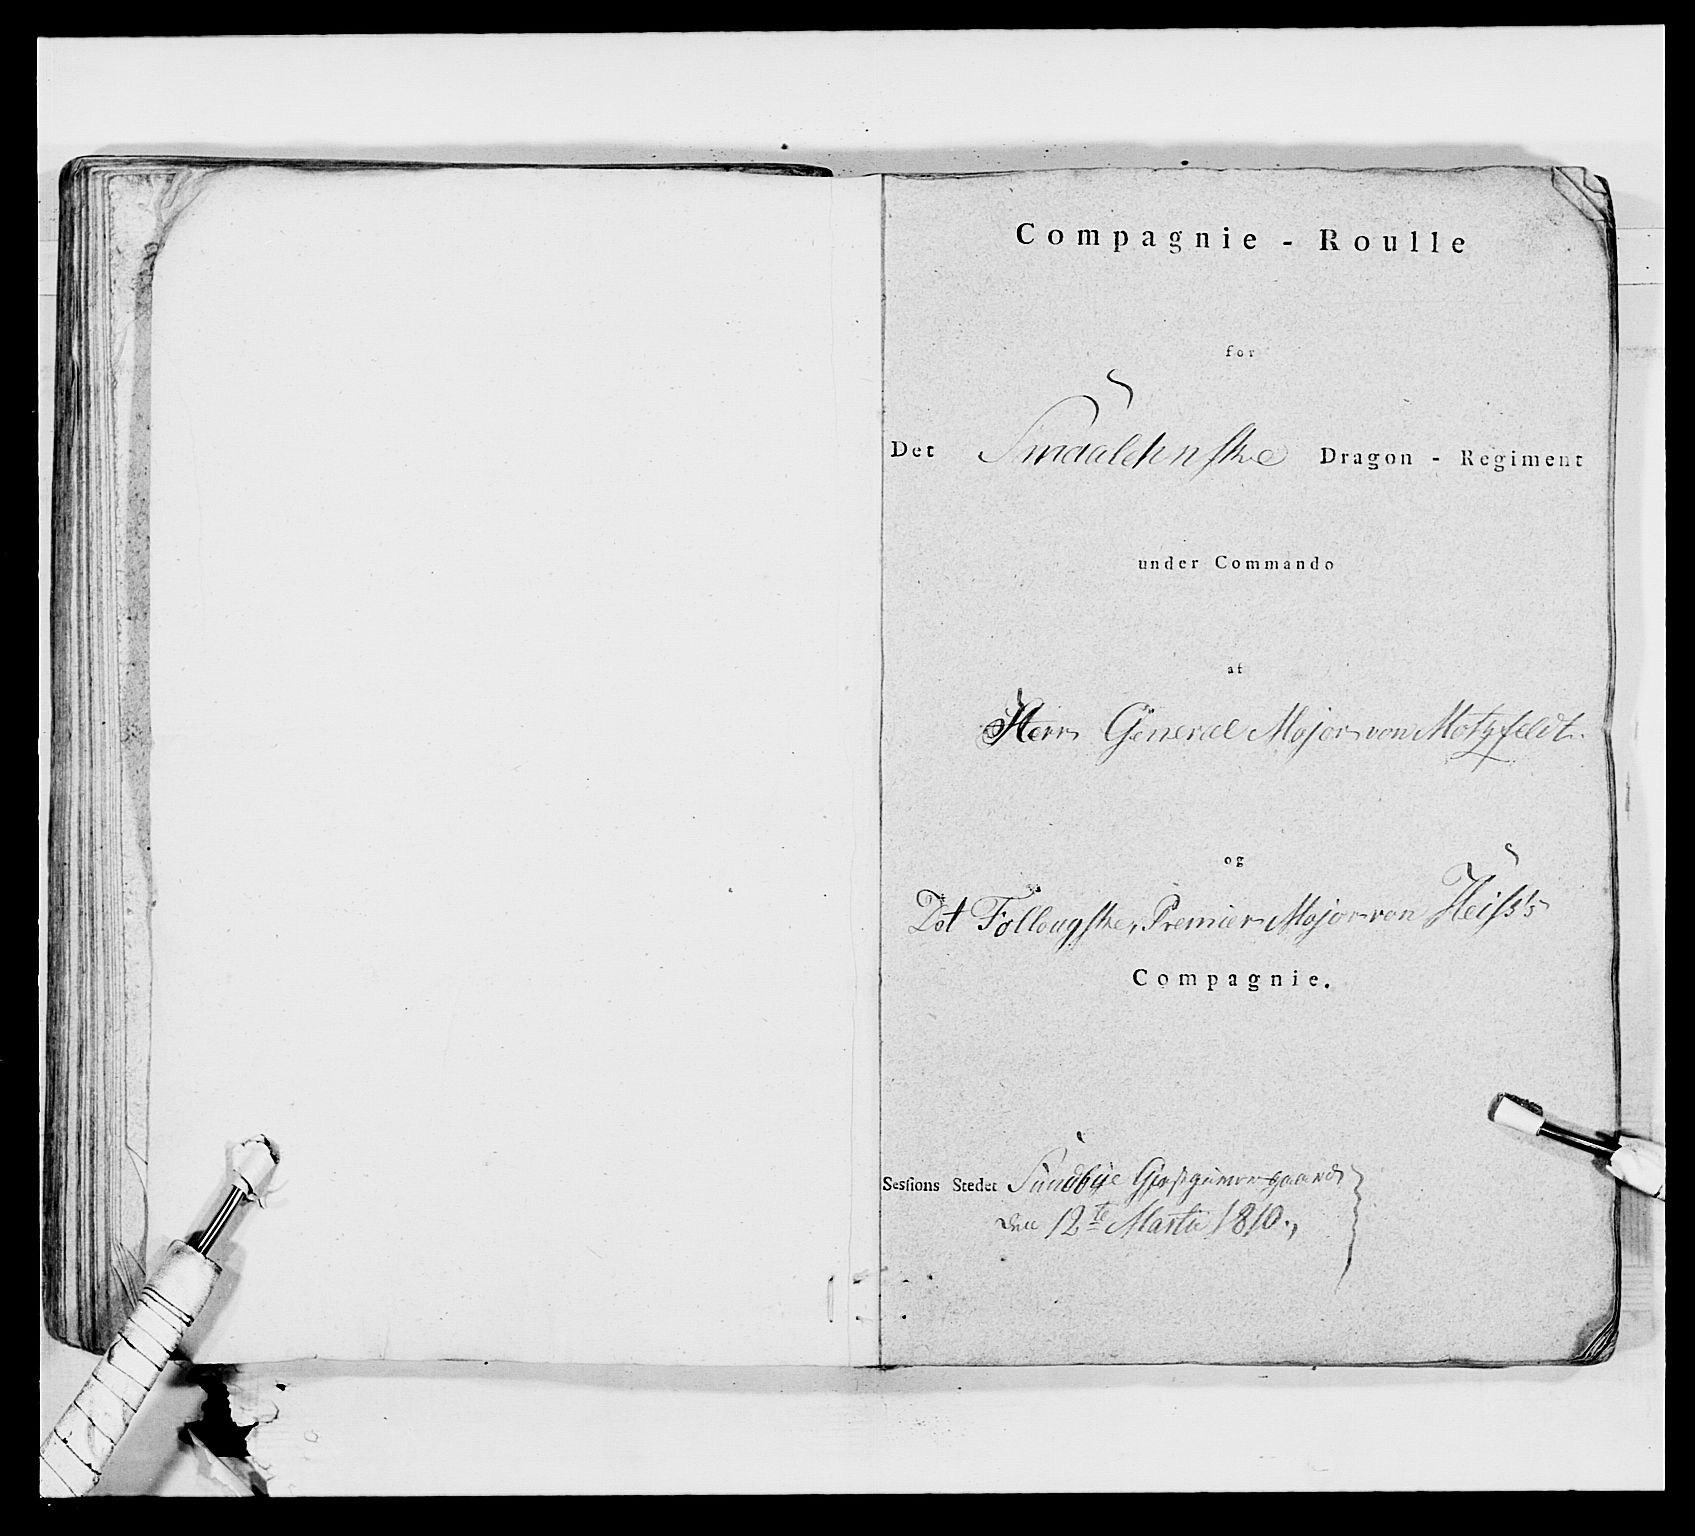 Compagnie - Roulle
for
Det Smaalehnske Dragon - Regiment
under Commando
af
Herr General Major von Motzfeldt.
og
Det Follougske, Premier Major von Heiss's
Compagnie.
Sessions Stedet Sundbye
den 12te Martii 1810.,